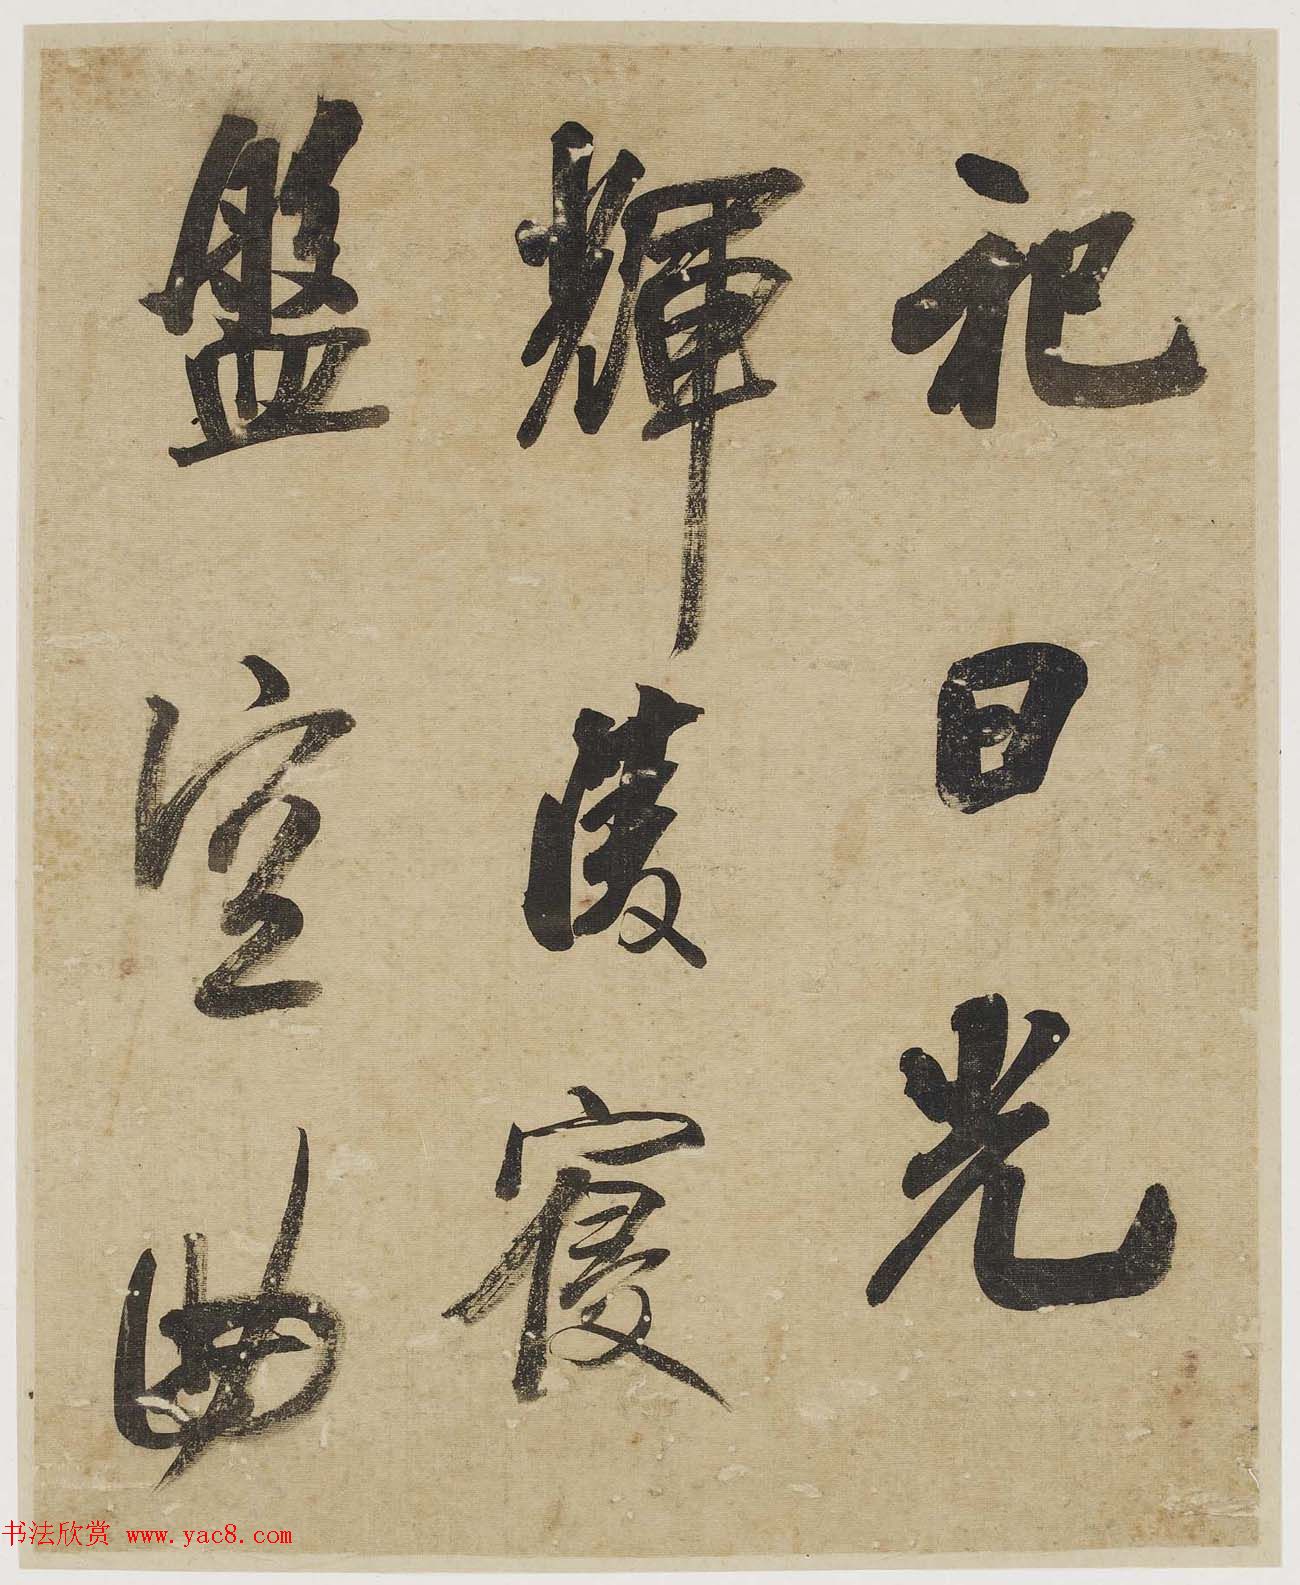 祀日光
輝陵寢
盤空曲
书法欣赏 www.yac8.com